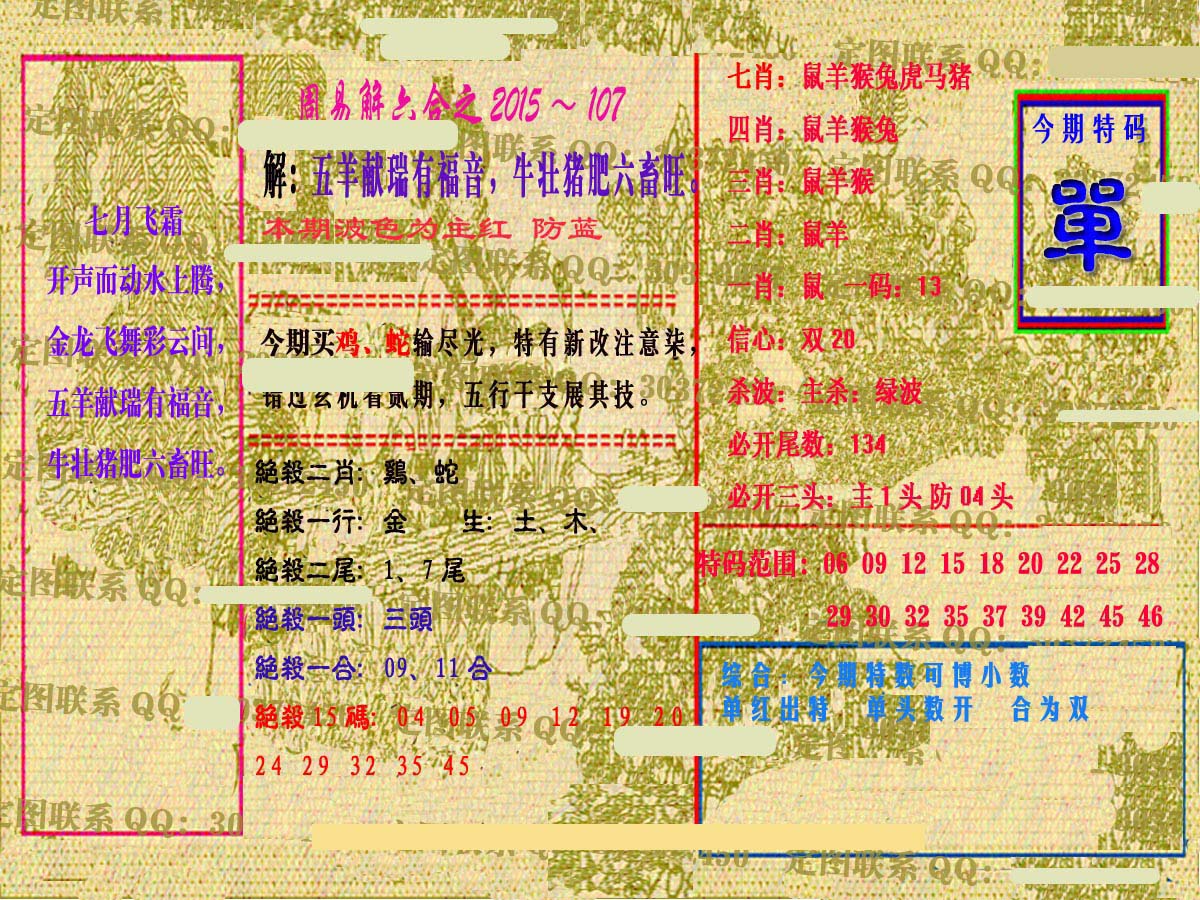 七月飞霜
开声而动水上腾,
金龙飞舞彩云间,
五羊献瑞有福音,
牛壮猪肥六畜旺。
周易解六合之 2015～107
解: 五羊献瑞有福音, 牛壮猪肥六畜旺。
本期波色为主红 防蓝
今期买鸡、蛇输尽光, 特有新改注意柒,
错过玄机看贰期, 五行干支展其技。
絕殺二肖: 鷄、蛇
絕殺一行: 金 生: 土、木、
絕殺二尾: 1、7 尾
絕殺一頭: 三頭
絕殺一合: 09、11 合
絕殺 15 碼: 04 05 09 12 19 20
24 29 32 35 45
七肖: 鼠羊猴兔虎马猪
四肖: 鼠羊猴兔
三肖: 鼠羊猴
二肖: 鼠羊
一肖: 鼠 一码: 13
信心: 双 20
杀波: 主杀: 绿波
必开尾数: 134
必开三头: 主 1 头 防 04 头
今期特码
單
特码范围: 06 09 12 15 18 20 22 25 28
29 30 32 35 37 39 42 45 46
综合: 今期特数可博小数
单红出特 单头数开 合为双
定图联系 QQ: